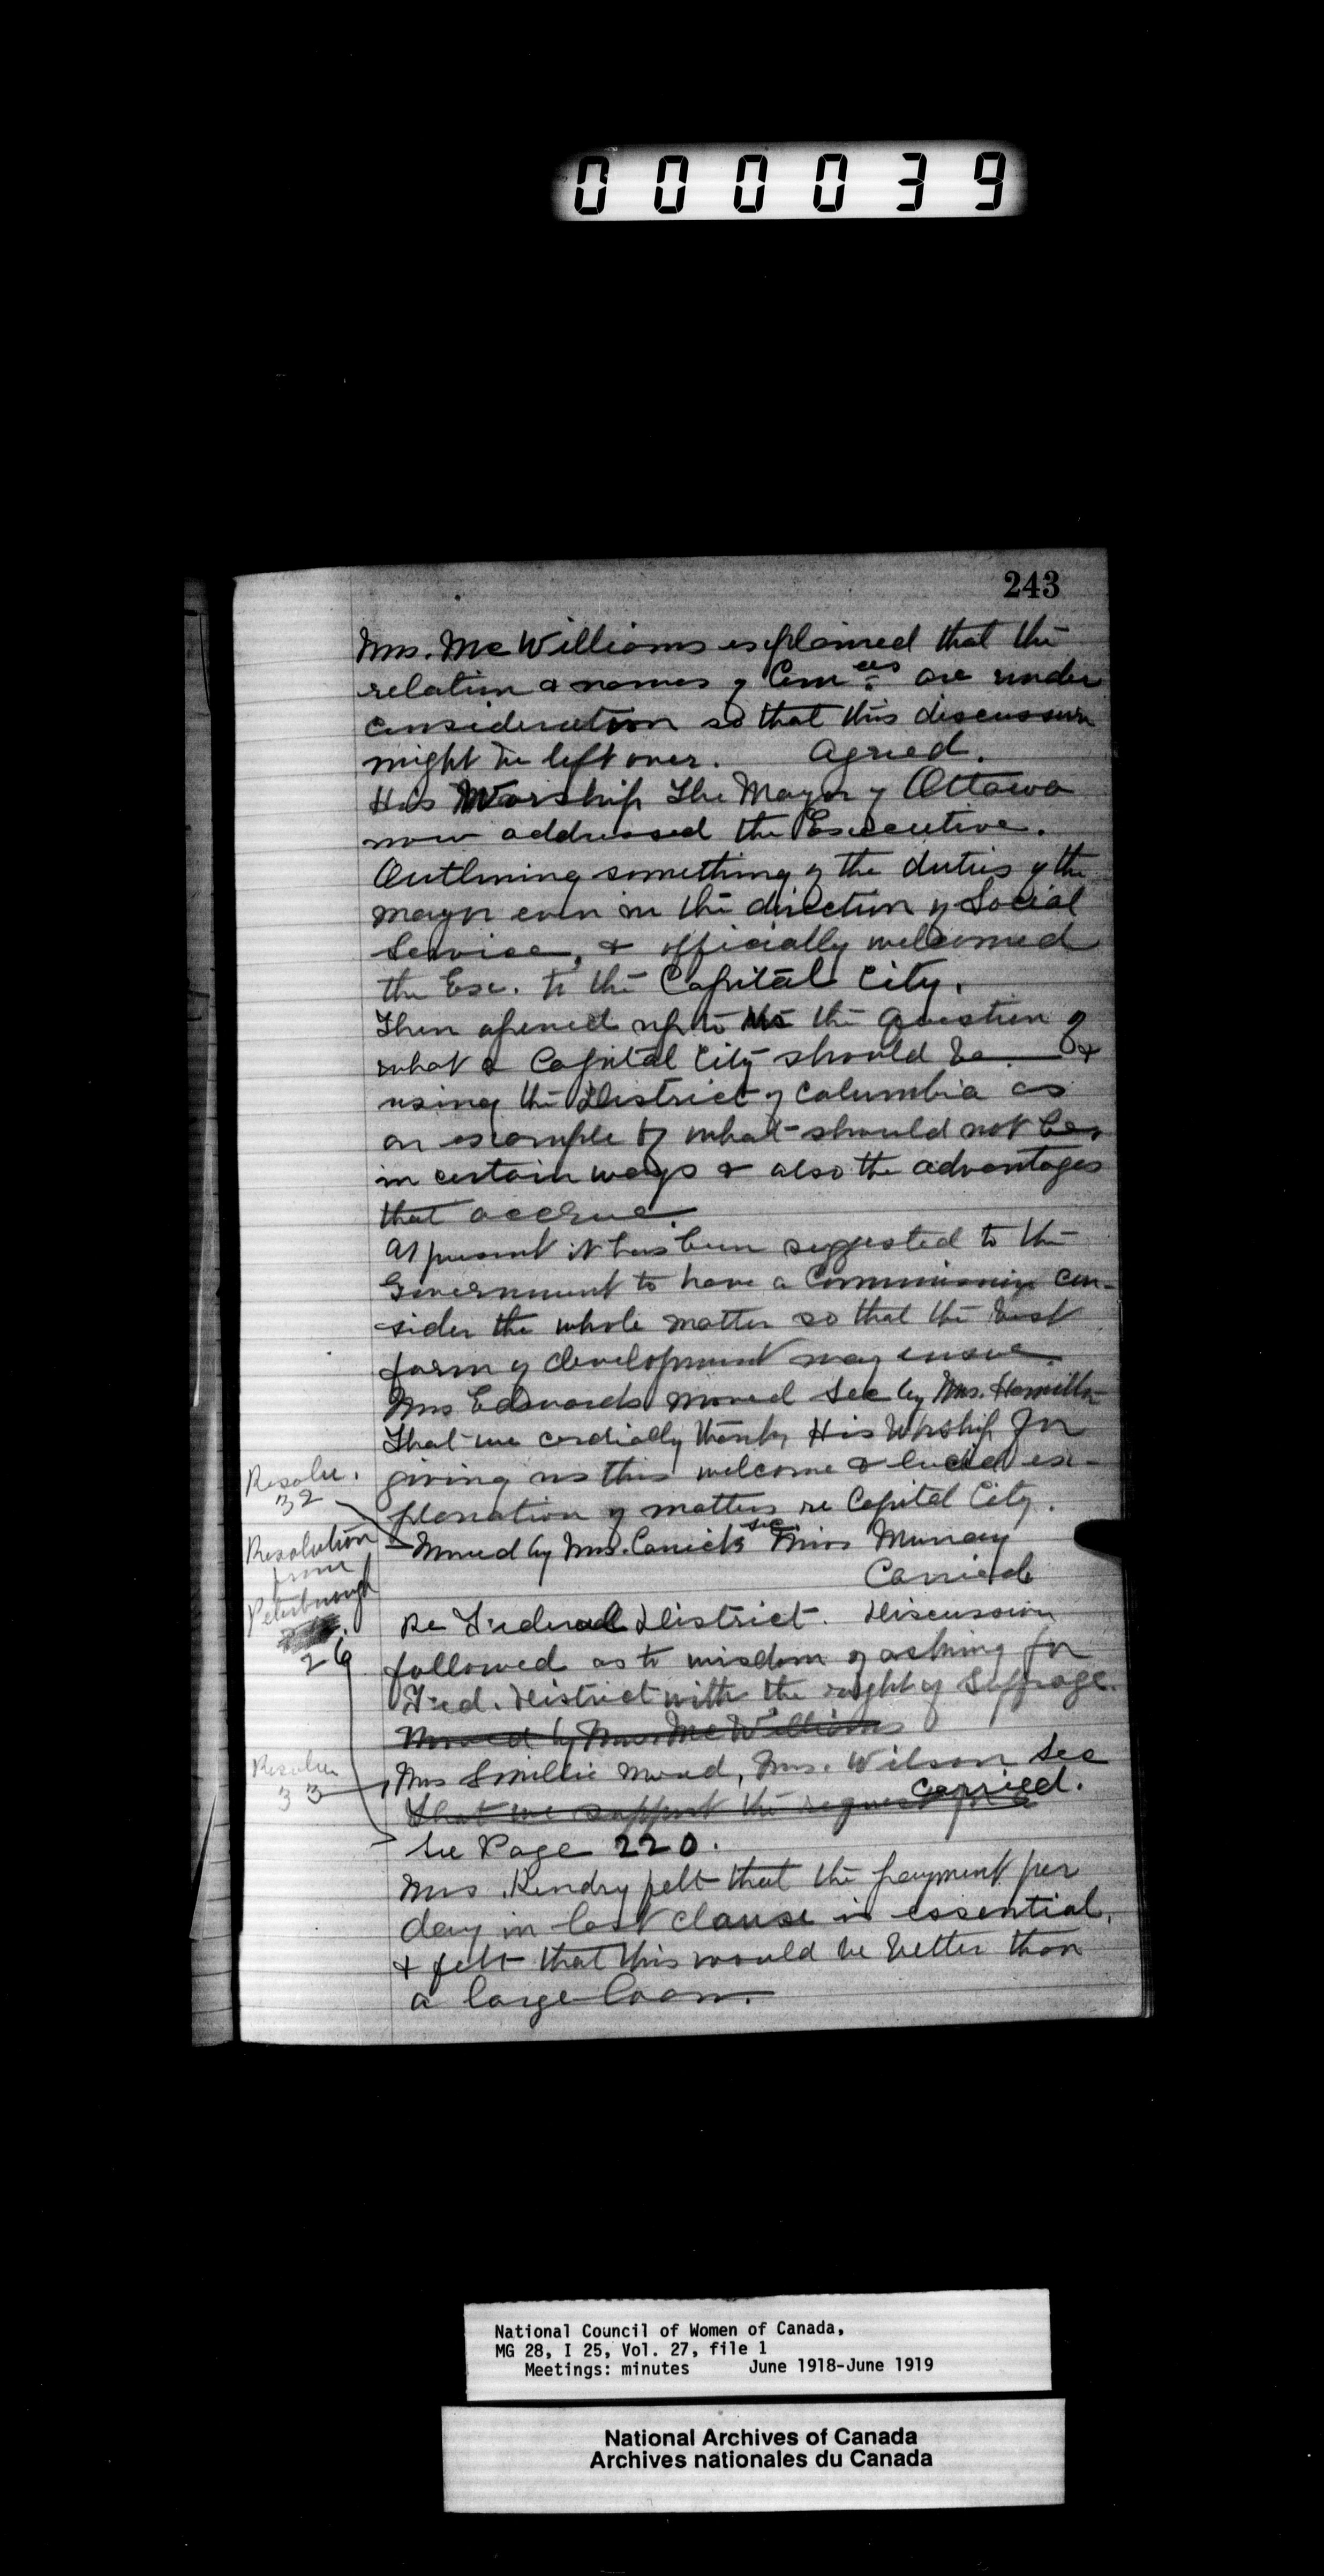 000039
243
Mrs. McWilliams explained that the
relation & names of Com.ees are under
consideration so that this discussion
might be left over. Agreed.
His Worship The Mayor of Ottawa
now addressed the Executive.
Outlining something of the duties of the
mayor even in the direction of Social
Service, & officially welcomed
the Exe. to the Capital City.
Then opened up to the question of
what a Capital City should be &
using the District of Columbia as
an example of what should not be,
in certain ways & also the advantages
that accrue.
At present it has been suggested to the
Government to have a Commission con-
sider the whole matter so that the best
form of development may ensue.
Mrs Edwards moved Sec by Mrs. Hamilton
That we cordially thank His Worship for
Resolu.
giving us this welcome & lucid ex-
32
planation of matters re Capital City.
Resolution
from
Peterborough
26
Moved by Mrs. Carrick sec Miss Murray
Carried
Re Federal District. Discussion
followed as to wisdom of asking for
Fed. District with the right of Suffrage.
Moved by Mrs. McWilliams
Resolu
33
Mrs Smillie moved, Mrs. Wilson Sec
That we support the request for a
carried.
See Page 220.
Mrs. Kendry felt that the payment per
day in last clause is essential,
& felt that this would be better than
a large loan.
National Council of Women of Canada,
MG 28, I 25, Vol. 27, file 1
Meetings: minutes June 1918-June 1919
National Archives of Canada
Archives nationales du Canada